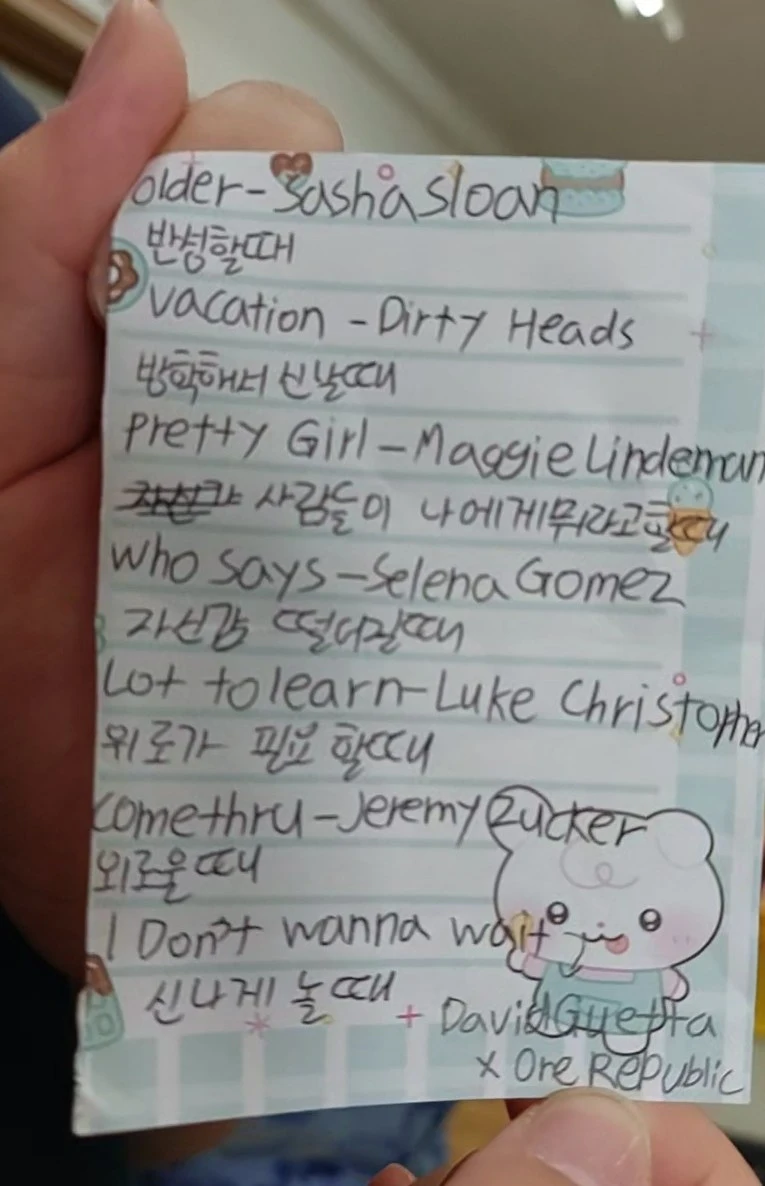 older-Sasha Sloan
반성할때
vacation - Dirty Heads
방학해서 신날때
Pretty Girl-Maggie Lindeman
사람들이 나에게 뭐라고 할때
Who Says-Selena Gomez
자신감 떨어질때
Lot to learn-Luke Christopher
위로가 필요 할때
comethru-Jeremy Zucker
외로울때
I Don't wanna wait
신나게 놀때
David Guetta
x One Republic